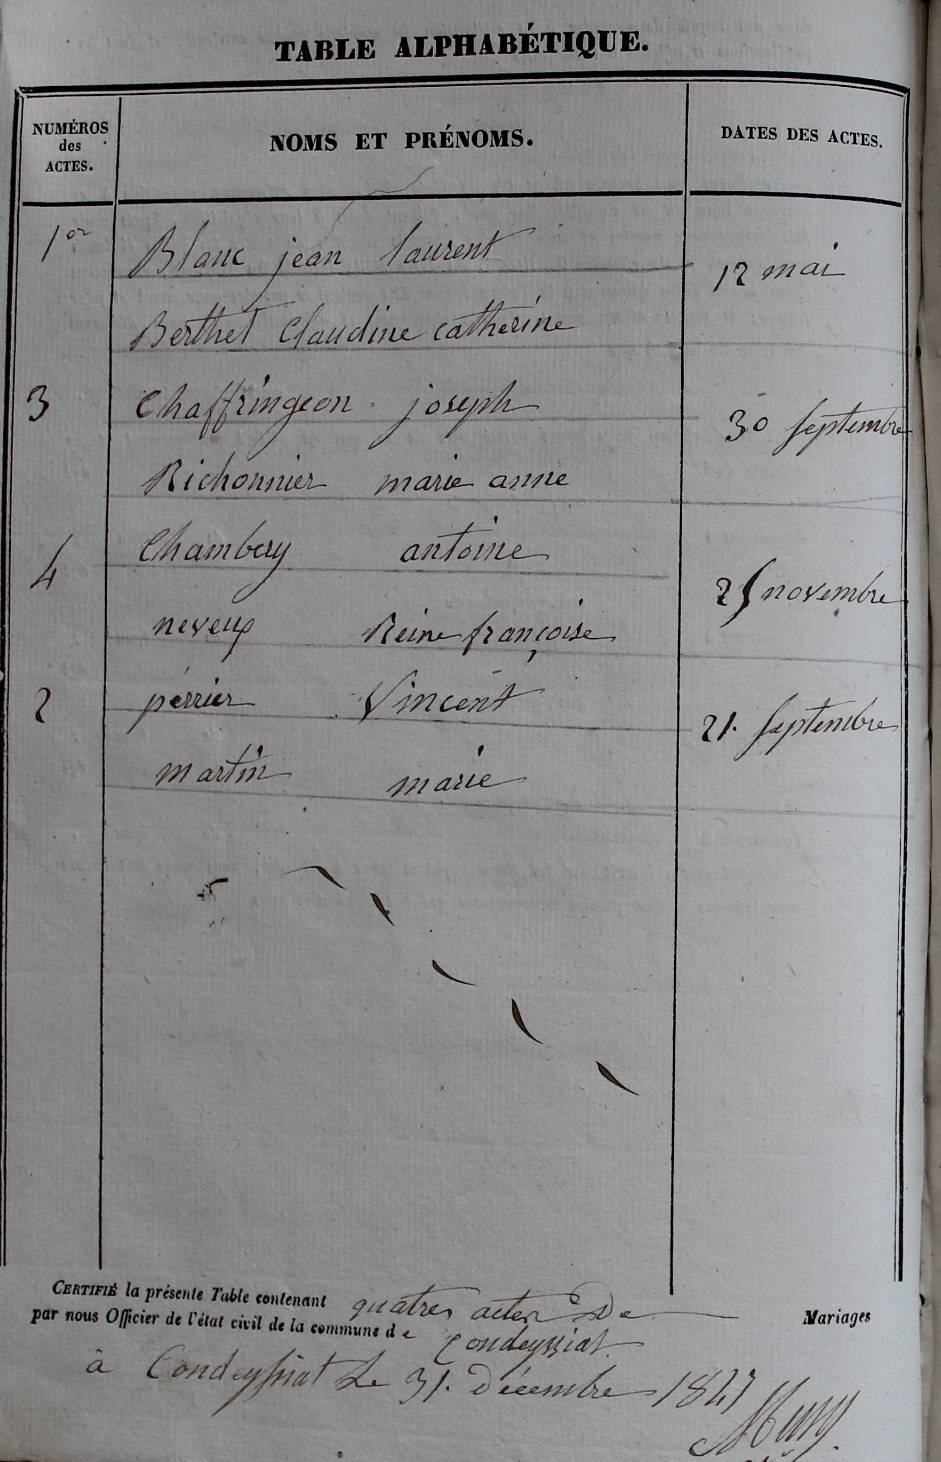 TABLE ALPHABÉTIQUE.
NUMÉROS
des
ACTES.
NOMS ET PRÉNOMS.
DATES DES ACTES.
1er
Blanc jean laurent
12 mai
Berthet Claudine catherine
3
Chaffringeon joseph
30 Septembre
Richonnier marie anne
4
Chambery antoine
25 novembre
neveux Reine françoise
2
perrier Vincent
21. Septembre
martin marie
CERTIFIÉ la présente Table contenant quatres actes de Mariages
par nous Officier de l'état civil de la commune de Condeyssiat
à Condeyssiat Le 31. Décembre 1847